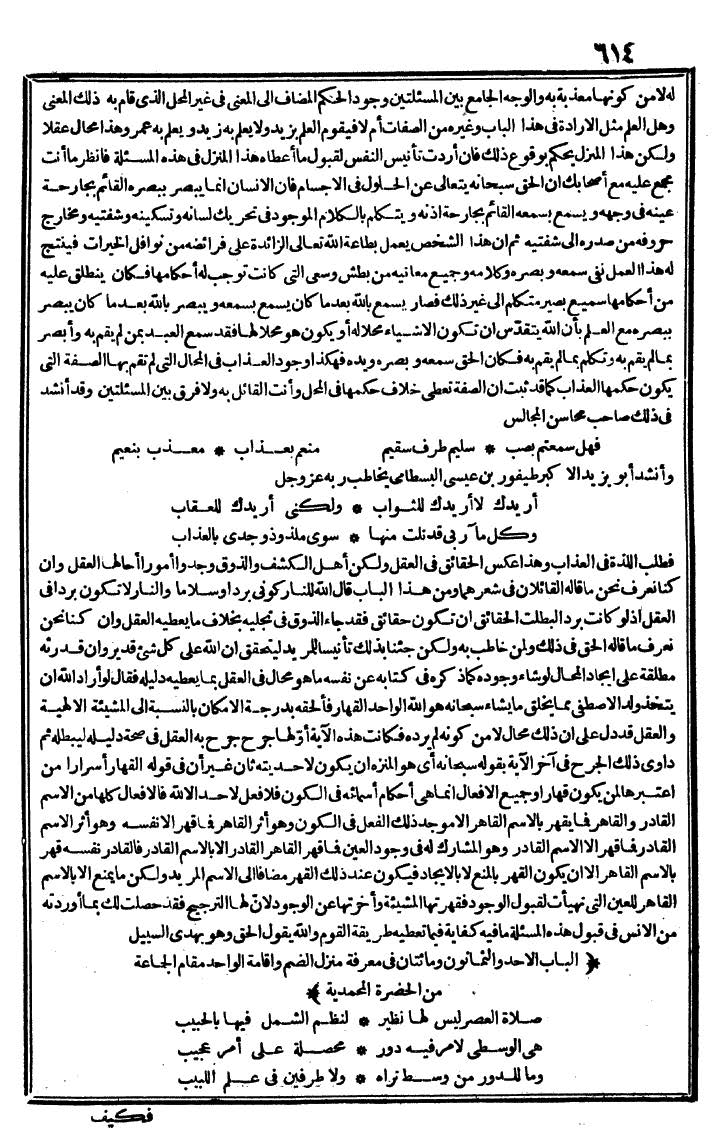 ٦١٤
له لا من كونها معذبة به والوجه الجامع بين المسئلتين وجود الحكم المضاف الى المعنى فى غير المحل الذى قام به ذلك المعنى
وهل العلم مثل الارادة فى هذا الباب وغيره من الصفات أم لا فيقوم العلم بزيد ولا يعلم به زيد ويعلم به عمر وهذا محال عقلا
ولكن هذا المنزل يحكم بوقوع ذلك فان أردت تأنيس النفس لقبول ما أعطاه هذا المنزل فى هذه المسئلة فانظر ما أنت
مجمع عليه مع أصحابك ان الحق سبحانه يتعالى عن الحلول فى الاجسام فان الانسان انما يبصر ببصره القائم بجارحة
عينه فى وجهه ويسمع بسمعه القائم بجارحة اذنه ويتكلم بالكلام الموجود فى تحريك لسانه وتسكينه وشفتيه ومخارج
حروفه من صدره الى شفتيه ثم ان هذا الشخص يعمل بطاعة الله تعالى الزائدة على فرائضه من نوافل الخيرات فينتج
له هذا العمل نفى سمعه وبصره وكلامه وجميع معانيه من بطش وسعى التى كانت توجب له أحكامها فكان ينطلق عليه
من أحكامها سميع بصير متكلم الى غير ذلك فصار يسمع بالله بعد ما كان يسمع بسمعه ويبصر بالله بعد ما كان يبصر
ببصره مع العلم بأن الله يتقدّس ان تكون الاشياء محلاله أو يكون هو محلا لها فقد سمع العبد بمن لم يقم به وأبصر
بما لم يقم به وتكلم بما لم يقم به فكان الحق سمعه وبصره ويده فهكذا وجود العذاب فى المحال التى لم تقم بها الصفة التى
يكون حكمها العذاب كما قد ثبت ان الصفة تعطى خلاف حكمها فى المحل وأنت القائل به ولا فرق بين المسئلتين وقد أنشد
فى ذلك صاحب محاسن المجالس
فهل سمعتم بصب * سليم طرف سقيم منعم بعذاب * معذب بنعيم
وأنشد أبو يزيد الاكبر طيفور بن عيسى البسطامى يخاطب ربه عز وجل
أريدك لا أريدك للثواب * ولكنى أريدك للعقاب
وكل مآربى قد نلت منها * سوى ملذوذ وجدى بالعذاب
فطلب اللذة فى العذاب وهذا عكس الحقائق فى العقل ولكن أهل الكشف والذوق وجدوا أمورا أحالها العقل وان
كنا نعرف نحن ما قاله القائلان فى شعرهما ومن هذا الباب قال الله للنار كونى بردا وسلاما والنار لا تكون بردا فى
العقل اذ لو كانت بردا لبطلت الحقائق ان تكون حقائق فقد جاء الذوق فى تجليه بخلاف ما يعطيه العقل وان كنا نحن
نعرف ما قاله الحق فى ذلك ولمن خاطب به ولكن جئنا بذلك تأنيسا للمريد ليتحقق ان الله على كل شئ قدير وان قدرته
مطلقة على ايجاد المحال لو شاء وجوده كما ذكره فى كتابه عن نفسه ما هو محال فى العقل بما يعطيه دليله فقال لو أراد الله ان
يتخذ ولدا لاصطفى مما يخلق ما يشاء سبحانه هو الله الواحد القهار فألحقه بدرجة الامكان بالنسبة الى المشيئة الالهية
والعقل قد دل على ان ذلك محال لا من كونه لم يرده فكانت هذه الآية أوّلها جرح جرح به العقل فى صحة دليله ليبطله ثم
داوى ذلك الجرح فى آخر الآية بقوله سبحانه أى هو المنزه ان يكون لاحديته ثان غير أن فى قوله القهار أسرارا من
اعتبرها لمن يكون قهارا وجميع الافعال انما هى أحكام أسمائه فى الكون فلا فعل لاحد الا لله فالافعال كلها من الاسم
القادر والقاهر فما يقهر بالاسم القاهر الا موجد ذلك الفعل فى الكون وهو أثر القاهر فما قهر الا نفسه وهو أثر الاسم
القادر فما قهر الا الاسم القادر وهو المشارك له فى وجود العين فما قهر القاهر القادر الا بالاسم القادر فالقادر نفسه قهر
بالاسم القاهر الا ان يكون القهر بالمنع لا بالايجاد فيكون عند ذلك القهر مضافا الى الاسم المريد ولكن ما يمنع الا بالاسم
القاهر للعين التى تهيأت لقبول الوجود فقهرتها المشيئة وأخرتها عن الوجود لانّ لها الترجيح فقد حصلت لك بما أوردته
من الانس فى قبول هذه المسئلة ما فيه كفاية فيما تعطيه طريقة القوم والله يقول الحق وهو يهدى السبيل
﴿ الباب الاحد والثمانون ومائتان فى معرفة منزل الضم واقامة الواحد مقام الجماعة
من الحضرة المحمدية ﴾
صلاة العصر ليس لها نظير * لنظم الشمل فيها بالحبيب
هى الوسطى لامر فيه دور * محصلة على أمر عجيب
وما للدور من وسط تراه * ولا طرفين فى علم اللبيب
فكيف